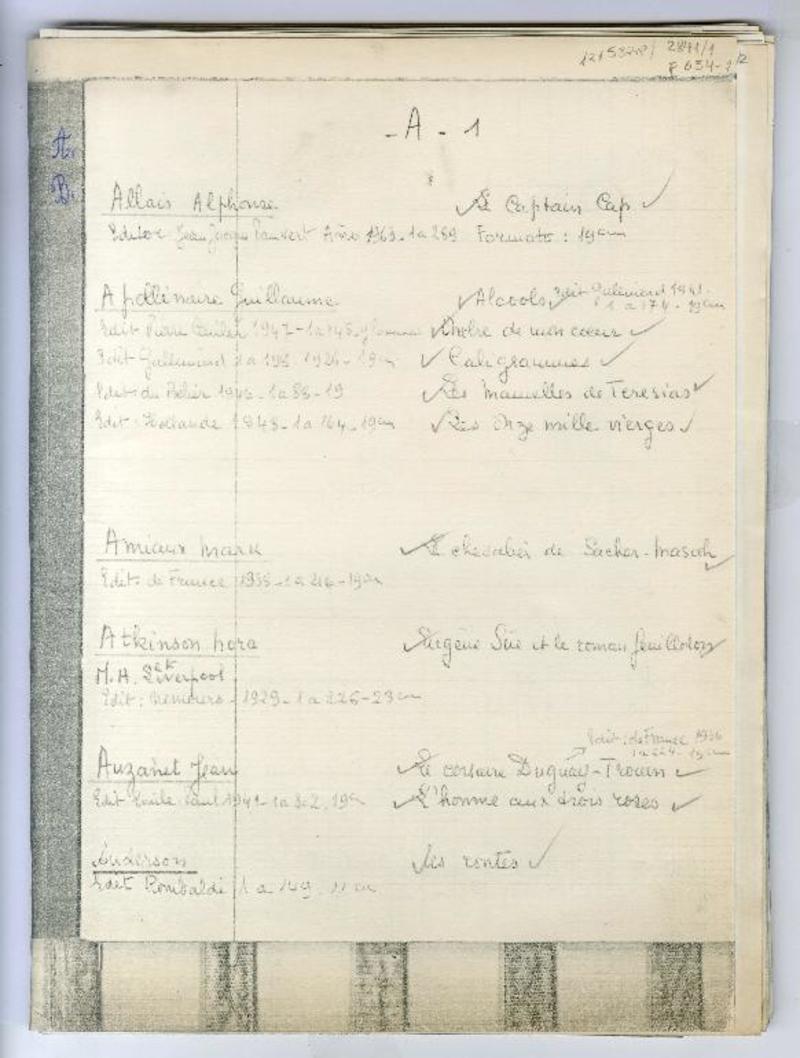 2841/1
A.
B.
- A - 1
Allais Alphonse Le Captain Cap
Editor Jean Jacques Pauvert Año 1963 - 1 a 289 Formato : 19cm
Apollinaire Guillaume Alcools Edit Gallimard 1941 -
1 a 174 - 19cm
Edit Pierre 1947 - 1 a Ombre de mon cœur
Edit Gallimard 1 a 195 1926 - 19cm Caligrammes
Edit du Bélier 1946 - 1 a 85 - 19 Les Mamelles de Teresias
Edit : Hollande 1948 - 1 a 164 - 19cm Les Onze mille vierges
Amiaux Mark Le chevalier de Sacher-Masoch
Edit de France 1935 - 1 a 216 - 19cm
Atkinson Nora Eugène Süe et le roman feuilleton
M.A. et Liverpool
Edit : Nemours - 1929 - 1 a 226 - 23cm
Edit : de France 1936
1 a 224 - 19cm
Auzanet Jean Le corsaire Duguay-Trouin
Edit Emile Paul 1941 - 1 a 19cm L'homme aux trois roses
Anderson les contes
Edit Rombaldi 1 a 149 11cm